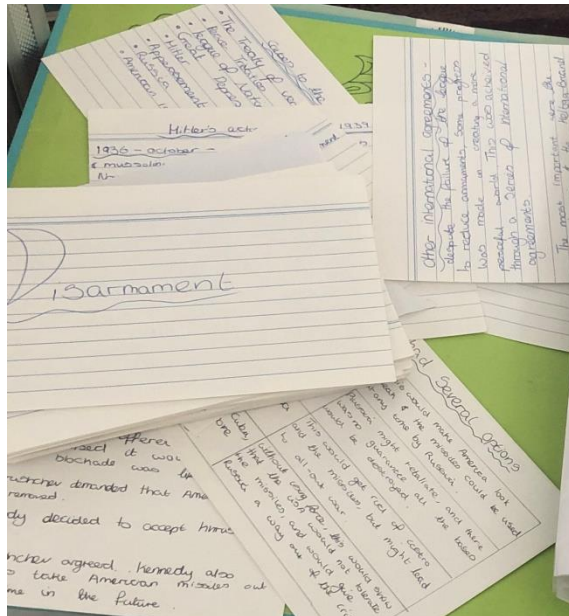 Causes to the
• The Treaty of Ver
• Peace Treaties
• League of Natio
• Great Depres
• Hitler
• Appeasement
• Russia
• American i
Hitler's act
1936 - october -
& mussolin
N-
1939
Other international agreements -
despite the failure of the league
to reduce armaments, some progress
was made in creating a more
peaceful world. This was acheived
through a series of international
agreements.
The most important were the
Kellogg-Briand
Disarmament
had several options
would make America look
weak & the missiles could be used
any time by Russia.
Russia might retaliate, and there
was no guarantee all the bases
would be destroyed.
This would get rid of castro
and the missiles, but might lead
to all-out war.
without using force, this would show
that the USA would not tolerate
the missiles, and would give
Russia a way out of the cri
Cuba,
one
it was
blockade was
demanded that Ame
removed.
dy decided to accept
agreed. Kennedy also
take American missiles out
me in the future.